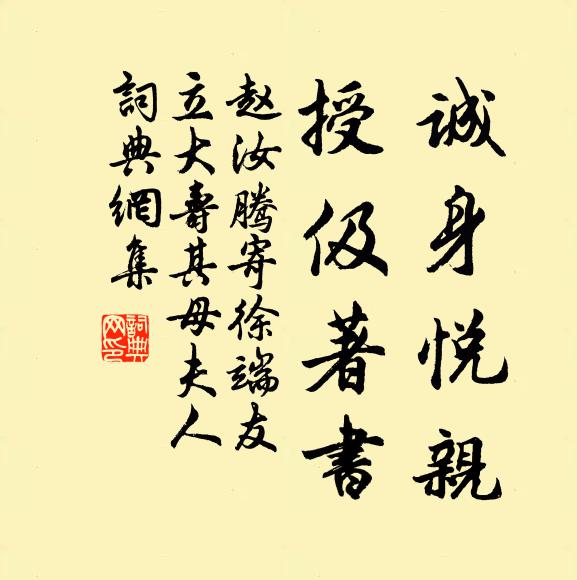 誠身悅親
授伋著書
赵汝騰寄徐端友
立大壽其母夫人
詞典網集
詞典
网印